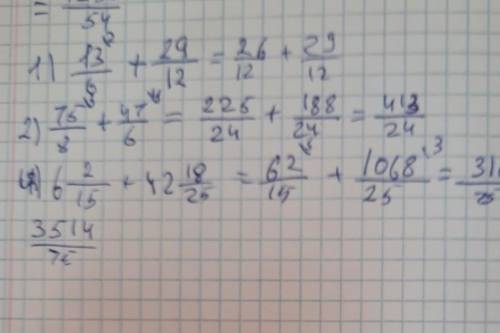 54
1) 13/6 + 29/12 = 26/12 + 29/12
2) 75/8 + 47/6 = 225/24 + 188/24 = 413/24
6 2/15 + 42 18/25 = 62/15 + 1068/25 =
3514/75